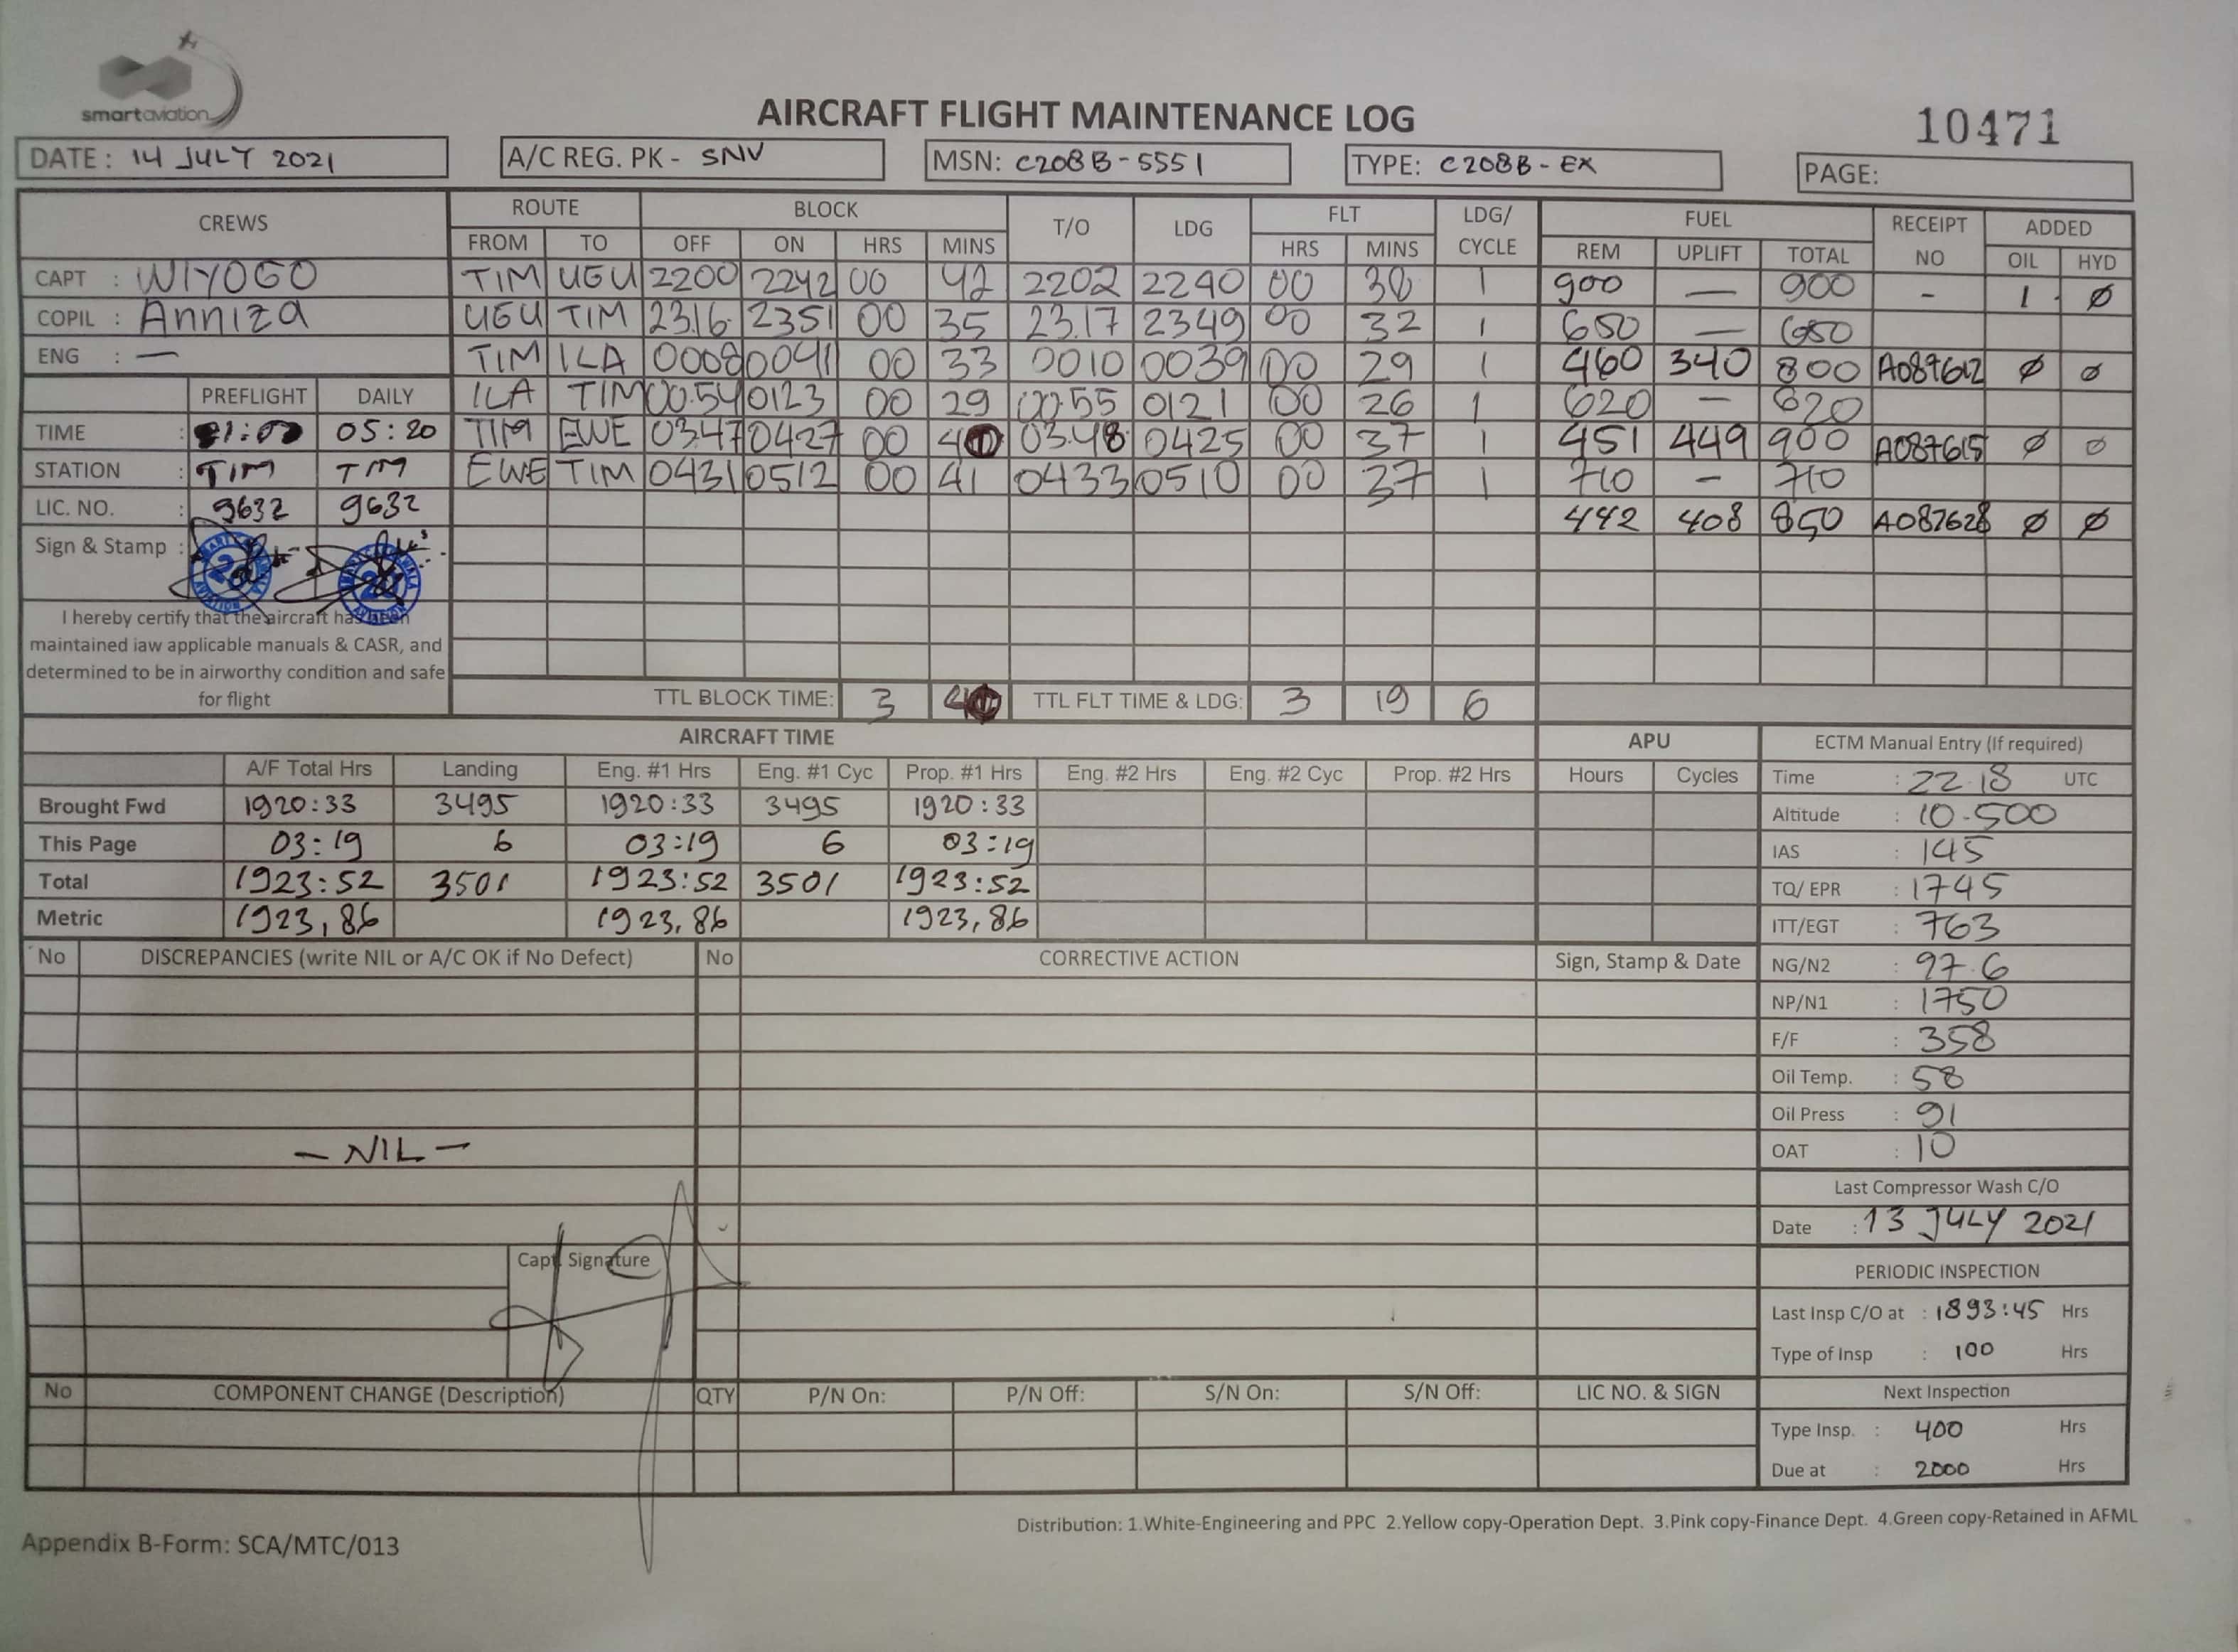 smartaviation
AIRCRAFT FLIGHT MAINTENANCE LOG
10471
DATE : 14 JULY 2021 A/C REG. PK - SNV MSN: C208B-5551 TYPE: C208B-EX PAGE:
CREWS ROUTE BLOCK T/O LDG FLT LDG/ CYCLE FUEL RECEIPT NO ADDED
FROM TO OFF ON HRS MINS HRS MINS REM UPLIFT TOTAL OIL HYD
CAPT : WIYOGO TIM UGU 2200 2242 00 42 2202 2240 00 38 1 900 — 900 - 1 Ø
COPIL : Anniza UGU TIM 2316 2351 00 35 2317 2349 00 32 1 650 — 650
ENG : — TIM ILA 0008 0041 00 33 0010 0039 00 29 1 460 340 800 A087612 Ø Ø
PREFLIGHT DAILY ILA TIM 00.54 0123 00 29 0055 0121 00 26 1 620 — 620
TIME : 05:20 TIM EWE 0347 0427 00 0348 0425 00 37 1 451 449 900 A087615 Ø Ø
STATION : TIM TIM EWE TIM 0431 0512 00 41 0433 0510 00 37 1 710 - 710
LIC. NO. : 9632 9632 442 408 850 A087628 Ø Ø
Sign & Stamp :
I hereby certify that the aircraft has been
maintained iaw applicable manuals & CASR, and
determined to be in airworthy condition and safe
for flight
TTL BLOCK TIME: 3 TTL FLT TIME & LDG: 3 19 6
AIRCRAFT TIME APU ECTM Manual Entry (If required)
A/F Total Hrs Landing Eng. #1 Hrs Eng. #1 Cyc Prop. #1 Hrs Eng. #2 Hrs Eng. #2 Cyc Prop. #2 Hrs Hours Cycles Time : 22.18 UTC
Brought Fwd 1920:33 3495 1920:33 3495 1920:33 Altitude : 10.500
This Page 03:19 6 03:19 6 03:19 IAS : 145
Total 1923:52 3501 1923:52 3501 1923:52 TQ/ EPR : 1745
Metric 1923,86 1923,86 1923,86 ITT/EGT : 763
No DISCREPANCIES (write NIL or A/C OK if No Defect) No CORRECTIVE ACTION Sign, Stamp & Date NG/N2 : 97.6
NP/N1 : 1750
F/F : 358
Oil Temp. : 58
Oil Press : 91
— NIL — OAT : 10
Last Compressor Wash C/O
Date : 13 JULY 2021
Capt. Signature
PERIODIC INSPECTION
Last Insp C/O at : 1893:45 Hrs
Type of Insp : 100 Hrs
No COMPONENT CHANGE (Description) QTY P/N On: P/N Off: S/N On: S/N Off: LIC NO. & SIGN Next Inspection
Type Insp. : 400 Hrs
Due at : 2000 Hrs
Distribution: 1.White-Engineering and PPC 2.Yellow copy-Operation Dept. 3.Pink copy-Finance Dept. 4.Green copy-Retained in AFML
Appendix B-Form: SCA/MTC/013